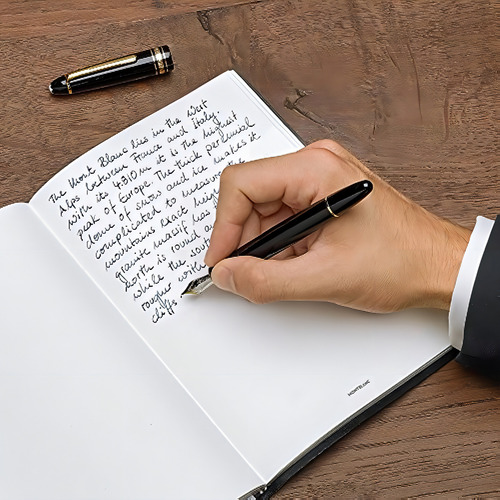 The Mont Blanc lies in the West
Alps between France and Italy.
With its 4.810 m it is the highest
peak of Europe. The thick perennial
dome of snow and ice makes it
complicated to measure the
mountains exact
granite massif has
North is round a
while the Sout
rougher with
cliffs
MONTBLANC